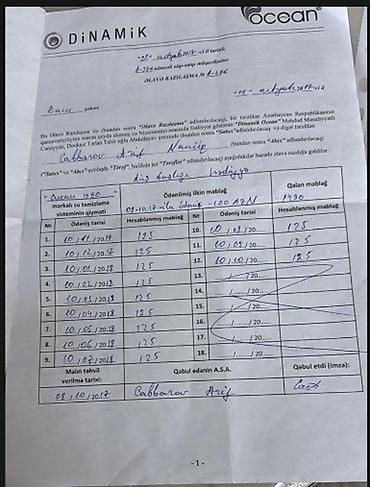 DiNAMiK
ocean
"09" oktyabr 2017-ci il tarixli
ƏLAVƏ RAZILAŞMA №
"09" oktyabr 2017-ci il
Bakı şəhəri
Bu Əlavə Razılaşma ilə (bundan sonra "Əlavə Razılaşma" adlandırılacaq), bir tərəfdən Azərbaycan Respublikasının
qanunvericiliyinə əsasən qeydə alınmış və Nizamnamə əsasında fəaliyyət göstərən "Dinamik Ocean" Məhdud Məsuliyyətli
Cəmiyyəti, Direktor Tərlan Tahir oğlu Abdullayev şəxsində (bundan sonra "Satıcı" adlandırılacaq) və digər tərəfdən
Cabbarov Arif (bundan sonra "Alıcı" adlandırılacaq)
("Satıcı" və "Alıcı" ayrılıqda "Tərəf", birlikdə isə "Tərəflər" adlandırılacaq) aşağıdakılar barədə əlavə razılığa gəldilər:
"Ocean
markalı su təmizləmə
sisteminin qiyməti
Ödənilmiş ilkin məbləğ
09.10.17 ilkin ödəniş -100 AZN
Qalan məbləğ
1490
№ Ödəniş tarixi Hesablanmış məbləğ № Ödəniş tarixi Hesablanmış məbləğ
1. 10/11/2017 125 10. 10/08/20 125
2. 10/12/2017 125 11. 10/09/20 125
3. 10/01/2018 125 12. 10/10/20 125
4. 10/02/2018 125 13. ....../....../ 20......
5. 10/03/2018 125 14. ....../....../ 20......
6. 10/04/2018 125 15. ....../....../ 20......
7. 10/05/2018 125 16. ....../....../ 20......
8. 10/06/2018 125 17. ....../....../ 20......
9. 10/07/2018 125 18. ....../....../ 20......
Malın təhvil
verilmə tarixi:
Qəbul edənin A.S.A.
Qəbul etdi (imza):
09/10/2017 Cabbarov Arif
- 1 -